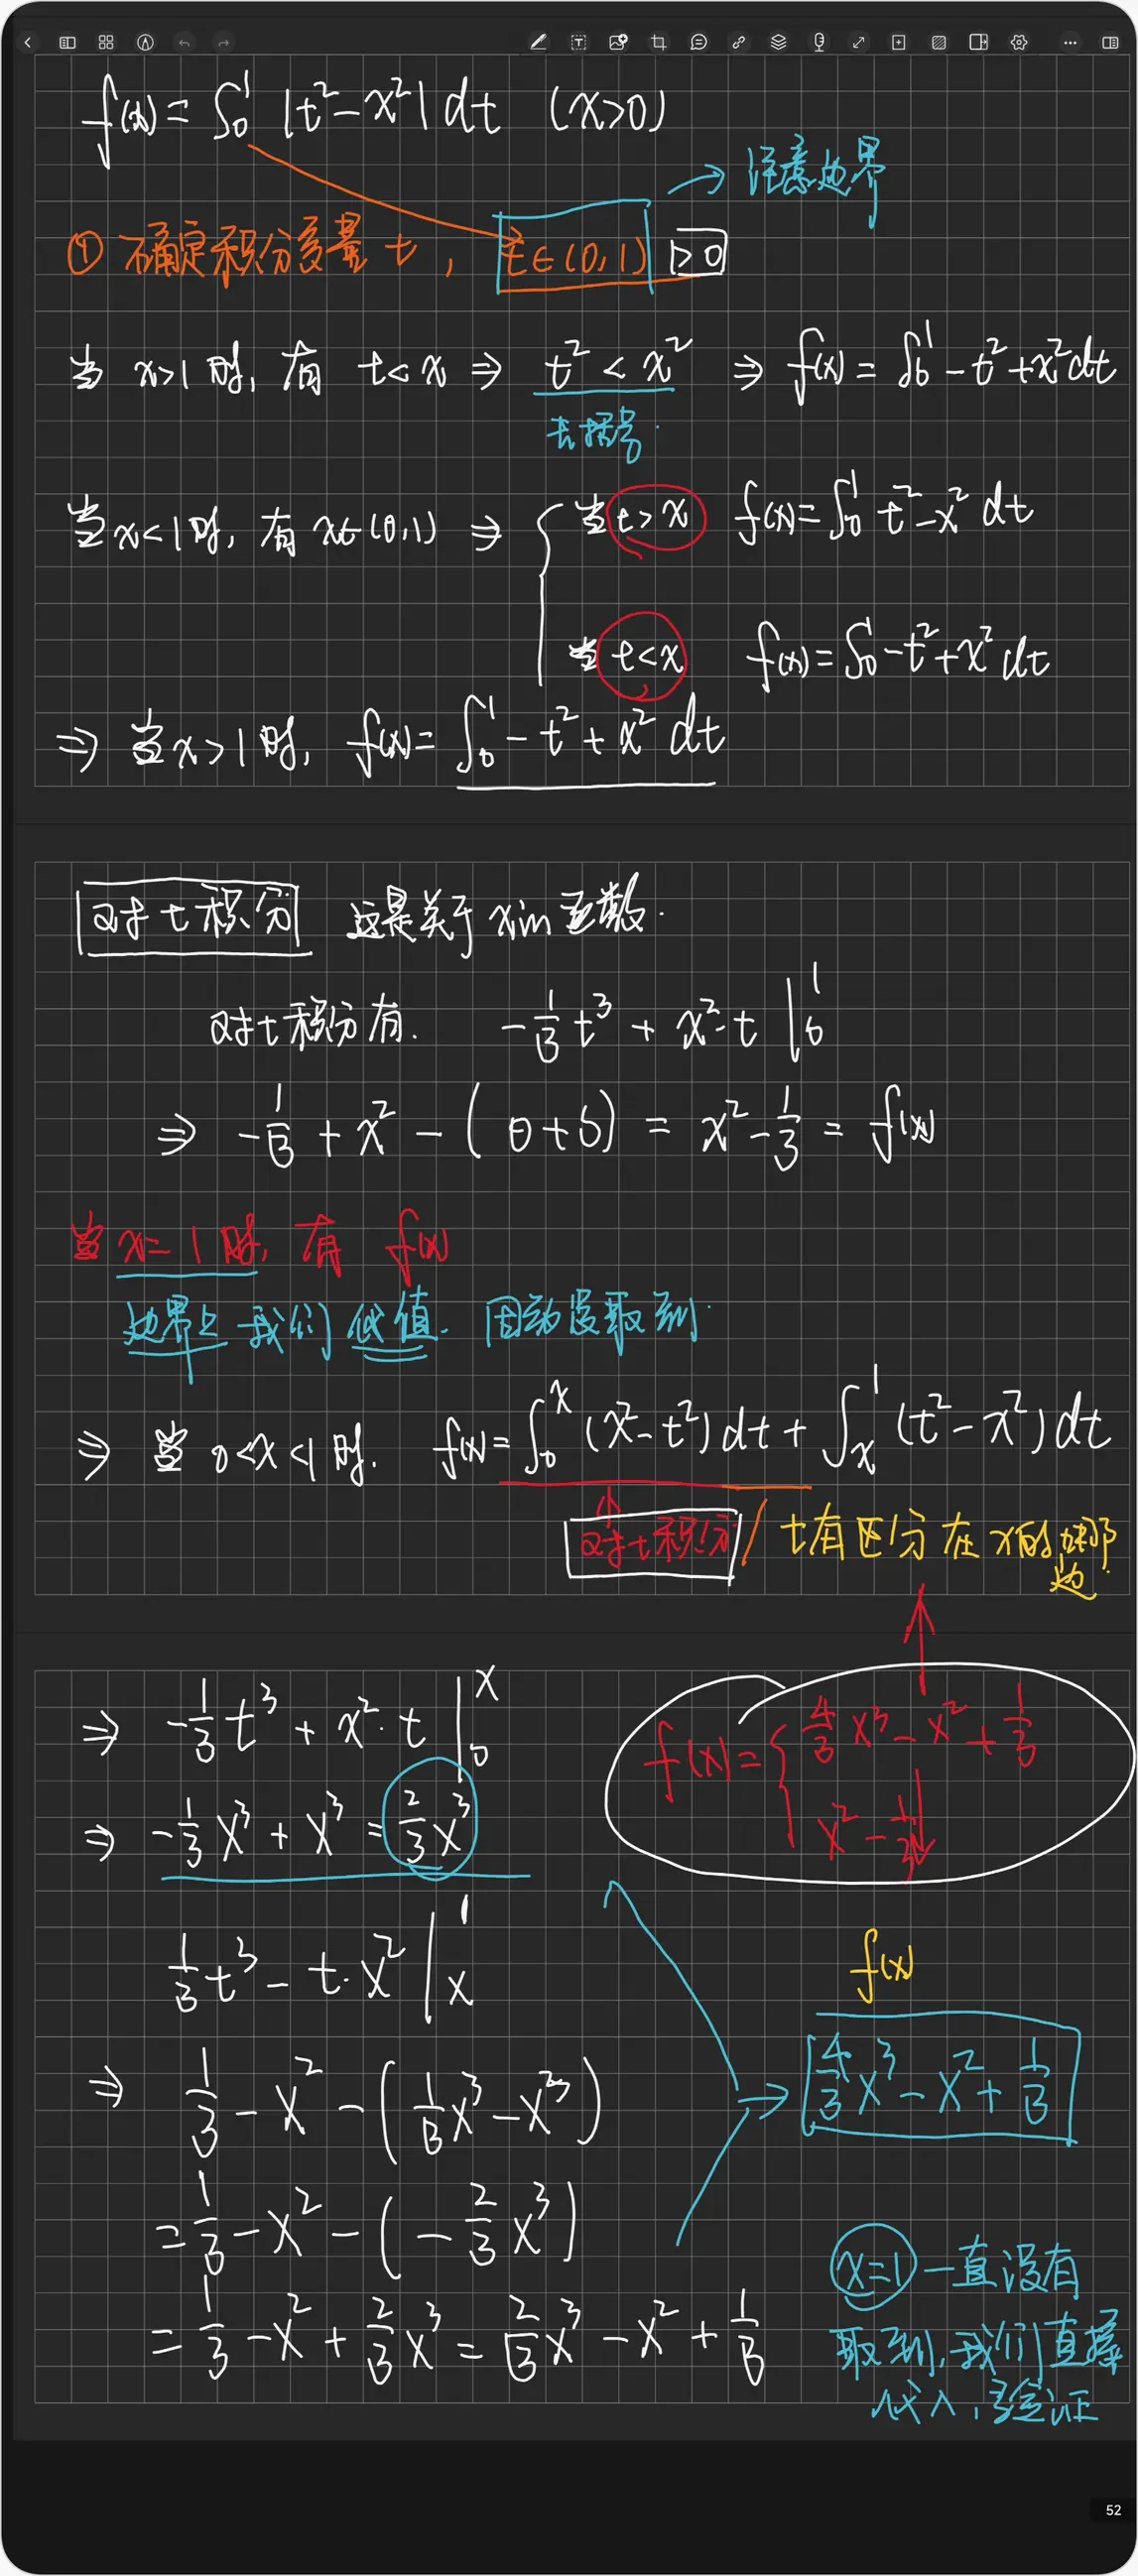 f(x) = ∫₀¹ |t² - x²| dt (x>0)
→ 注意边界
① 确定积分变量 t, t∈(0,1) >0
当 x>1 时, 有 t<x ⇒ t² < x² ⇒ f(x) = ∫₀¹ -t²+x² dt
去括号.
当 x<1 时, 有 x∈(0,1) ⇒ { 当 t>x f(x) = ∫₀¹ t²-x² dt
当 t<x f(x) = ∫₀¹ -t²+x² dt
⇒ 当 x>1 时, f(x) = ∫₀¹ -t² + x² dt
对 t 积分 这是关于 x in 函数.
对 t 积分有. -1/3 t³ + x²·t |₀¹
⇒ -1/3 + x² - (0+0) = x² - 1/3 = f(x)
当 x=1 时, 有 f(x)
边界上 我们 代值. 因为没取到.
⇒ 当 0<x<1 时. f(x) = ∫₀ˣ (x²-t²) dt + ∫ₓ¹ (t²-x²) dt
对 t 积分 / t 有区分 在 x 的哪
边.
⇒ -1/3 t³ + x²·t |₀ˣ
f(x) = { 4/3 x³ - x² + 1/3
x² - 1/3
⇒ -1/3 x³ + x³ = 2/3 x³
1/3 t³ - t·x² |ₓ¹
f(x)
⇒ 1/3 - x² - (1/3 x³ - x³)
4/3 x³ - x² + 1/3
= 1/3 - x² - (-2/3 x³)
= 1/3 - x² + 2/3 x³ = 2/3 x³ - x² + 1/3
x=1 一直没有
取到, 我们直接
代入, 验证
52